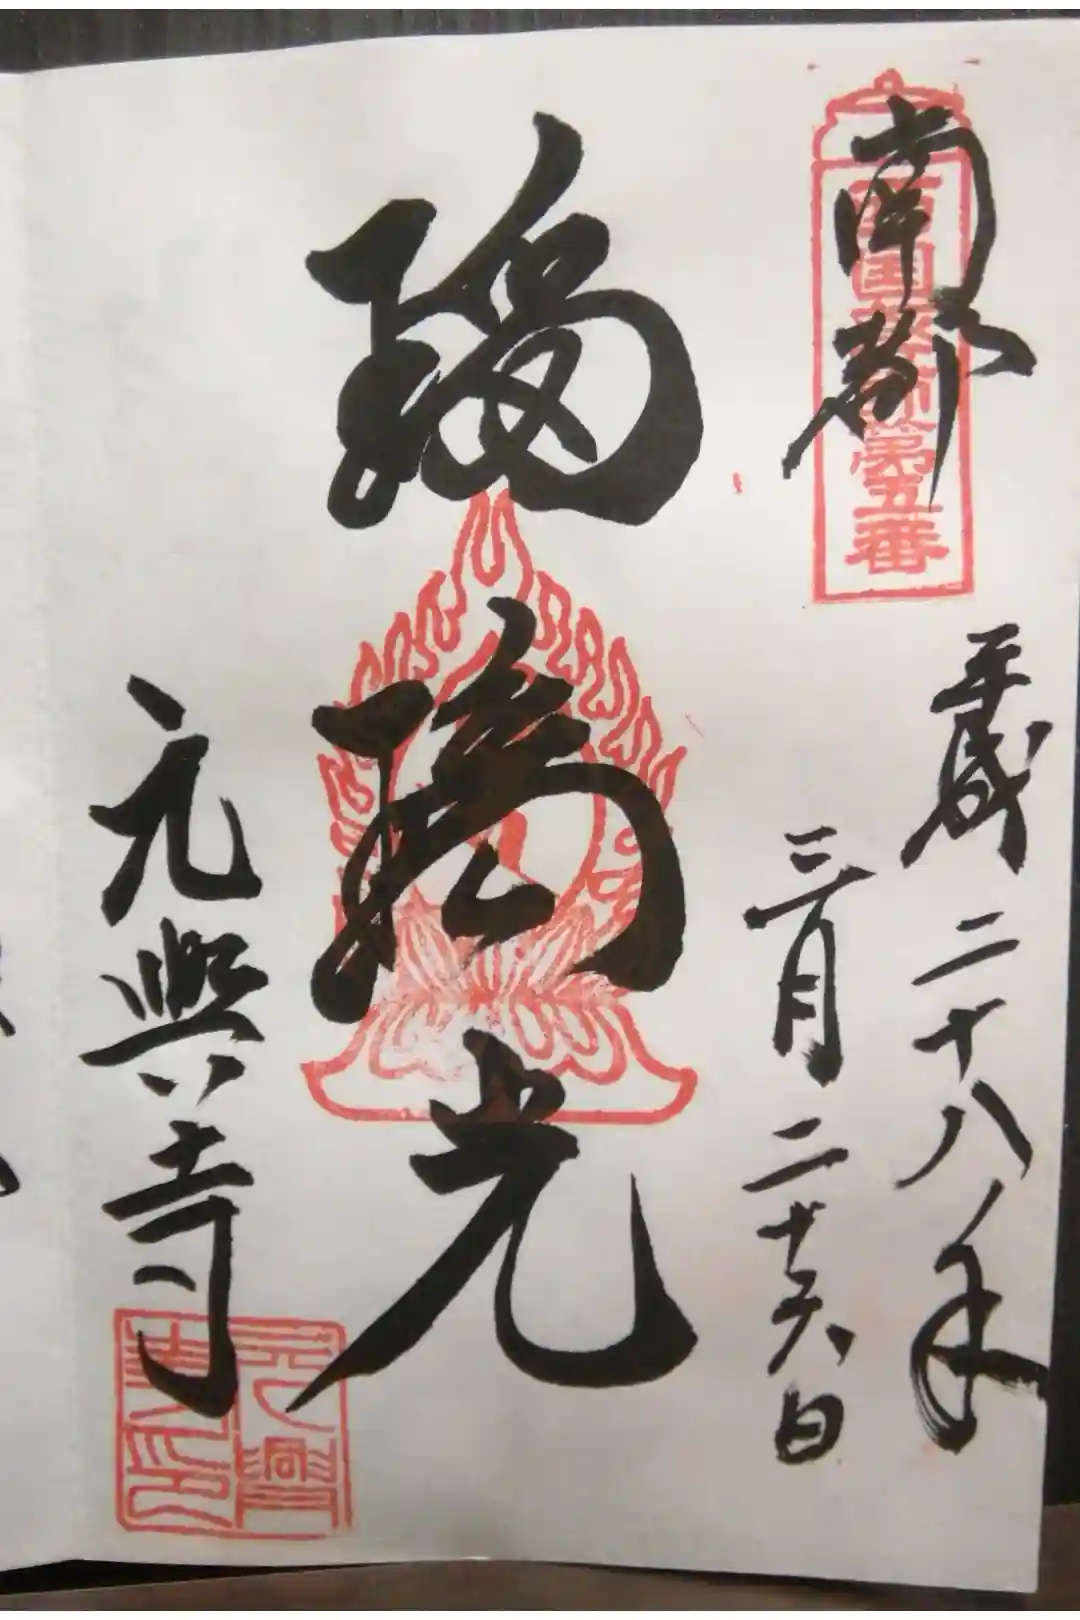 南都
西国薬師第五番
平成二十八年
三月二十六日
瑠璃光
元興寺
元興寺印